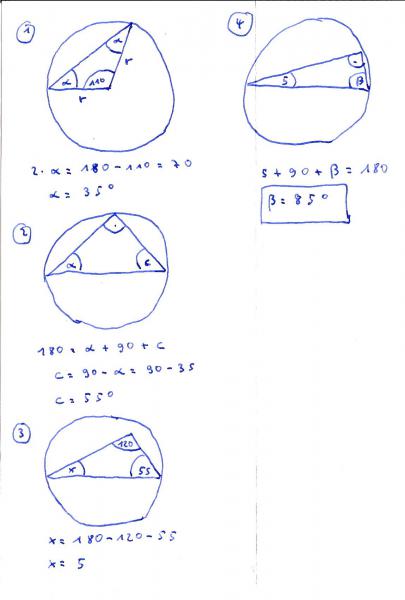 1
α
α
110
r
r
2. α = 180 - 110 = 70
α = 35°
2
α
c
180 = α + 90 + c
c = 90 - α = 90 - 35
c = 55°
3
x
120
55
x = 180 - 120 - 55
x = 5
4
5
β
5 + 90 + β = 180
β = 85°